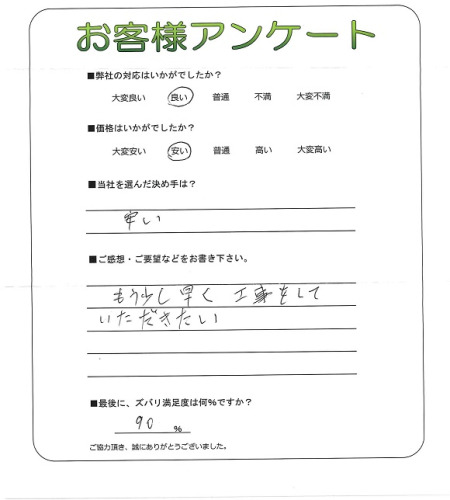 お客様アンケート
■弊社の対応はいかがでしたか?
大変良い 良い 普通 不満 大変不満
■価格はいかがでしたか?
大変安い 安い 普通 高い 大変高い
■当社を選んだ決め手は?
安い
■ご感想・ご要望などをお書き下さい。
もう少し早く工事をして
いただきたい
■最後に、ズバリ満足度は何%ですか?
90 %
ご協力頂き、誠にありがとうございました。